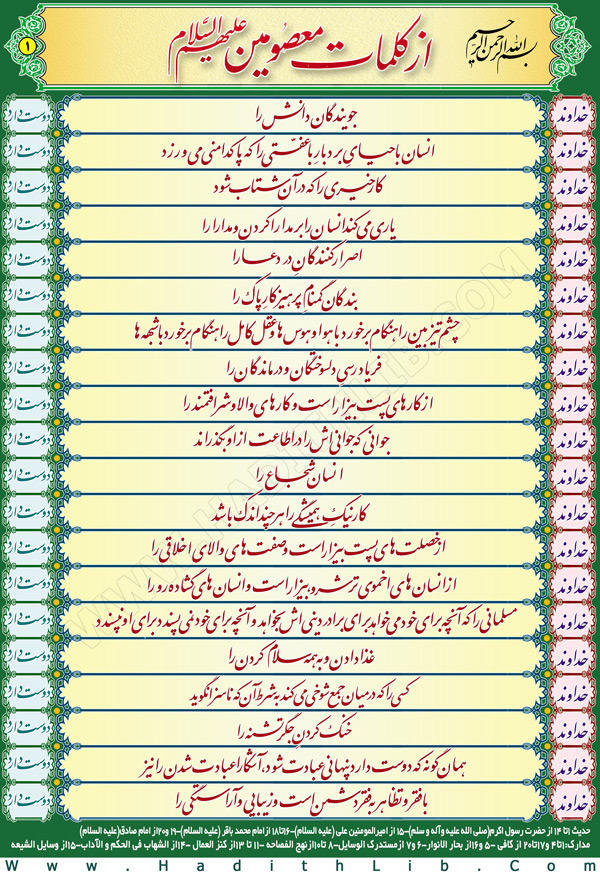 ۱
از کلمات معصومین علیهم السلام
بسم الله الرحمن الرحیم
خداوند جویندگان دانش را دوست دارد
خداوند انسان باحیای بردبارِ باعفّتی را که پاکدامنی می ورزد دوست دارد
خداوند کار خیری را که در آن شتاب شود دوست دارد
خداوند یاری می کند انسان را بر مدارا کردن و مدارا را دوست دارد
خداوند اصرار کنندگانِ در دعا را دوست دارد
خداوند بندگان گمنامِ پرهیزکارِ پاک را دوست دارد
خداوند چشم تیزبین را هنگام برخورد با هوا و هوس ها و عقل کامل را هنگام برخورد با شبهه ها دوست دارد
خداوند فریادرسیِ دلسوختگان و درماندگان را دوست دارد
خداوند از کارهای پست بیزار است و کارهای والا و شرافتمند را دوست دارد
خداوند جوانی که جوانی اش را در اطاعت از او بگذراند دوست دارد
خداوند انسان شجاع را دوست دارد
خداوند کار نیکِ همیشگی را هر چند اندک باشد دوست دارد
خداوند از خصلت های پست بیزار است و صفت های والای اخلاقی را دوست دارد
خداوند از انسان های اخموی ترشرو بیزار است و انسان های گشاده رو را دوست دارد
خداوند مسلمانی را که آنچه برای خود می خواهد برای برادر دینی اش بخواهد و آنچه برای خود نمی پسندد برای او نپسندد دوست دارد
خداوند غذا دادن و به همه سلام کردن را دوست دارد
خداوند کسی را که در میان جمع شوخی می کند به شرط آن که ناسزا نگوید دوست دارد
خداوند خنک کردنِ جگر تشنه را دوست دارد
خداوند همان گونه که دوست دارد پنهانی عبادت شود، آشکارا عبادت شدن را نیز دوست دارد
خداوند با فقر و تظاهر به فقر دشمن است و زیبایی و آراستگی را دوست دارد
حدیث ۱تا ۱۴ از حضرت رسول اکرم(صلی الله علیه وآله و سلم)-۱۵ از امیرالمومنین علی (علیه السلام)-۱۶تا۱۸ از امام محمد باقر (علیه السلام)-۱۹ و۲۰از امام صادق(علیه السلام)
مدارک:۱تا۴ و۱۷تا۲۰ از کافی - ۵ و۱۶از بحار الانوار- ۶ و۷ ازمستدرک الوسایل- ۸ تا۱۰از نهج الفصاحه -۱۱ تا ۱۳ از کنز العمال -۱۴از الشهاب فی الحکم و الآداب-۱۵ وسایل الشیعه
Www.HadithLib.Com
WWW.HADITHLIB.COM